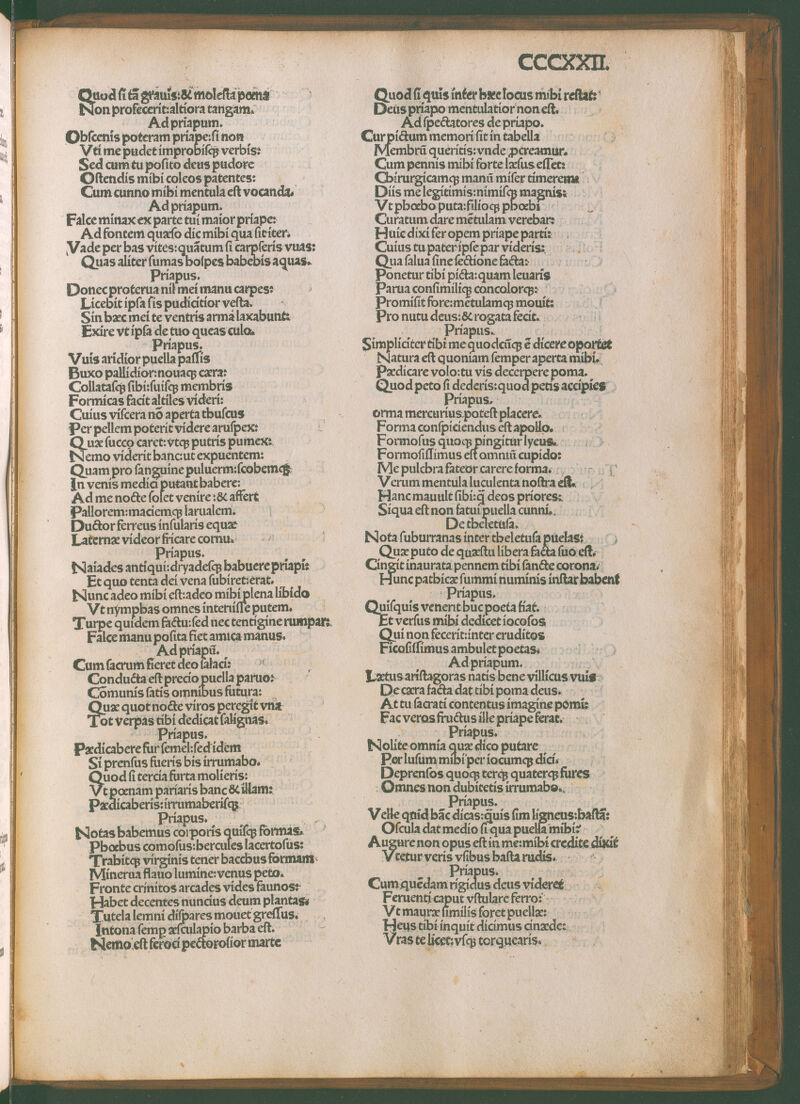 CCCXXII.
Quod si tã grauis:& molesta poena
Non profecerit:altiora tangam.
Ad priapum.
Obscenis poteram priape:si non
Vti me pudet improbisq; verbis:
Sed cum tu posito deus pudore
Ostendis mihi coleos patentes:
Cum cunno mihi mentula est vocanda.
Ad priapum.
Falce minax ex parte tui maior priape:
Ad fontem quæso dic mihi qua sit iter.
Vade per has vites:quãtum si carpseris vuas:
Quas aliter sumas hospes habebis aquas.
Priapus.
Donec proterua nil mei manu carpes:
Licebit ipsa sis pudicitior vesta.
Sin hæc mei te ventris arma laxabunt:
Exire vt ipsa de tuo queas culo.
Priapus.
Vuis aridior puella passis
Buxo pallidior:nouaq; cæra:
Collatasq; sibi:suisq; membris
Formicas facit altiles videri:
Cuius viscera nõ aperta thuscus
Per pellem poterit videre aruspex:
Quæ succo caret:vtq; putris pumex:
Nemo viderit hanc:ut expuentem:
Quam pro sanguine puluerm:scobemq;
In venis medici putant habere:
Ad me nocte solet venire:& affert
Pallorem:maciemq; larualem.
Ductor ferreus insularis equæ
Laternæ videor fricare cornu.
Priapus.
Naiades antiqui:dryadesq; habuere priapi:
Et quo tenta dei vena subiret:erat.
Nunc adeo mihi est:adeo mihi plena libido
Vt nymphas omnes interiisse putem.
Turpe quidem factu:sed nec tentigine rumpar:
Falce manu posita fiet amica manus.
Ad priapũ.
Cum sacrum fieret deo salaci:
Conducta est precio puella paruo:
Cõmunis satis omnibus futura:
Quæ quot nocte viros peregit vna
Tot verpas tibi dedicat salignas.
Priapus.
Pædicabere fur semel:sed idem
Si prensus fueris bis irrumabo.
Quod si tercia furta molieris:
Vt poenam pariaris hanc & illam:
Pædicaberis:irrumaberisq;
Priapus.
Notas habemus corporis quisq; formas.
Phoebus comosus:hercules lacertosus:
Trabitq; virginis tener bacchus formam
Minerua flauo lumine:venus peto.
Fronte crinitos arcades vides faunos:
Habet decentes nuncius deum plantas:
Tutela lemni dispares mouet gressus.
Intona semp æsculapio barba est.
Nemo est feroci pectorosior marte
Quod si quis inter hæc locus mihi restat:
Deus priapo mentulatior non est.
Ad spectatores de priapo.
Cur pictum memori sit in tabella
Membrũ queritis:vnde pcreamur.
Cum pennis mihi forte læsus esset:
Chirurgicamq; manũ miser timerem:
Diis me legitimis:nimisq; magnis:
Vt phoebo puta:filioq; phoebi
Curatum dare mẽtulam verebar:
Huic dixi fer opem priape parti:
Cuius tu pater ipse par videris:
Qua salua sine sectione facta:
Ponetur tibi picta:quam leuaris
Parua consimiliq; concolorq;:
Promisit fore:mẽtulamq; mouit:
Pro nutu deus:& rogata fecit.
Priapus.
Simpliciter tibi me quodcũq; ẽ dicere oportet
Natura est quoniam semper aperta mihi.
Pædicare volo:tu vis decerpere poma.
Quod peto si dederis:quod petis accipies
Priapus.
orma mercurius poteſt placere.
Forma conspiciendus est apollo.
Formosus quoq; pingitur lycus.
Formosissimus est omniũ cupido:
Me pulchra fateor carere forma.
Verum mentula luculenta nostra est.
Hanc mauult sibi:q̃ deos priores:
Siqua est non fatui puella cunni.
De theletusa.
Nota suburranas inter theletusa puelas:
Quæ puto de quæstu libera facta suo est.
Cingit inaurata pennem tibi sancte corona.
Hunc pathicæ summi numinis instar habent
Priapus.
Quisquis venerit huc poeta fiat.
Et versus mihi dedicet iocosos
Qui non fecerit:inter eruditos
Ficosissimus ambulet poetas.
Ad priapum.
Lætus aristagoras natis bene villicus vuis
De cæra facta dat tibi poma deus.
At tu sacrati contentus imagine pomi:
Fac veros fructus ille priape ferat.
Priapus.
Nolite omnia quæ dico putare
Per lusum mihi per iocumq; dici.
Deprensos quoq; terq; quaterq; fures
Omnes non dubitetis irrumabo.
Priapus.
Velle quid hãc dicas:quis sim ligneus:hastã:
Oscula dat medio si qua puella mihi?
Augure non opus est in me:mihi credite dixit
Vtetur veris vsibus hasta rudis.
Priapus.
Cum quẽdam rigidus deus videret
Feruenti caput vstulare ferro:
Vt mauræ similis foret puellæ:
Heus tibi inquit dicimus cinæde:
Vras te licet:vsq; torquearis.